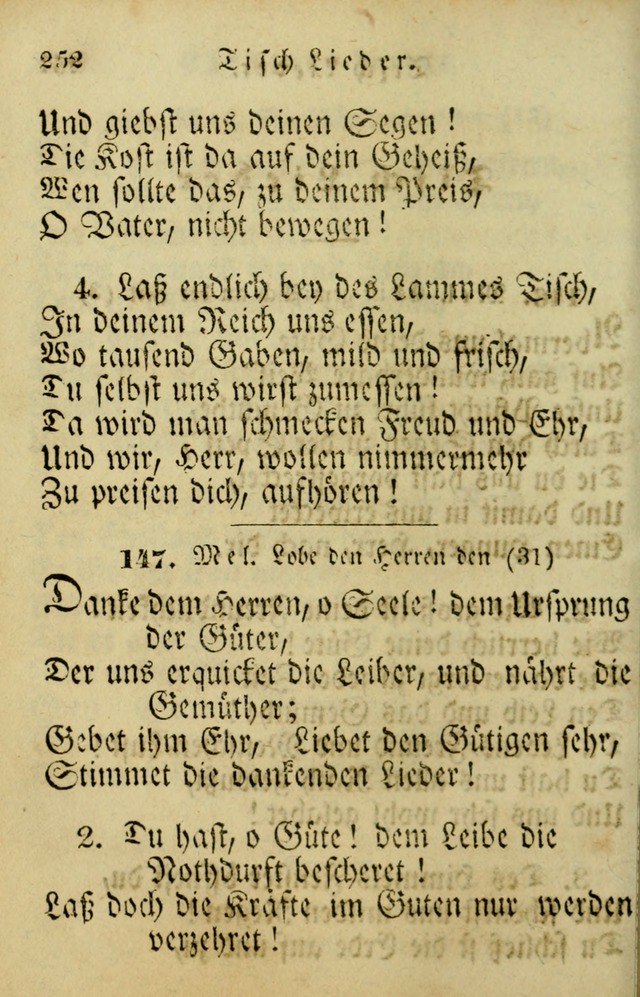 252 Tisch Lieder.
Und giebst uns deinen Segen !
Die Kost ist da auf dein Geheiß,
Wen sollte das, zu deinem Preis,
O Vater, nicht bewegen !
4. Laß endlich bey des Lammes Tisch,
In deinem Reich uns essen,
Wo tausend Gaben, mild und frisch,
Du selbst uns wirst zumessen !
Da wird man schmecken Freud und Ehr,
Und wir, Herr, wollen nimmermehr
Zu preisen dich, aufhören !
147. Mel. Lobe den Herren den (31)
Danke dem Herren, o Seele ! dem Ursprung
der Güter,
Der uns erquicket die Leiber, und nährt die
Gemüther;
Gebet ihm Ehr, Liebet den Gütigen sehr,
Stimmet die dankenden Lieder !
2. Du hast, o Güte ! dem Leibe die
Nothdurft bescheret !
Laß doch die Kräfte im Guten nur werden
verzehret !